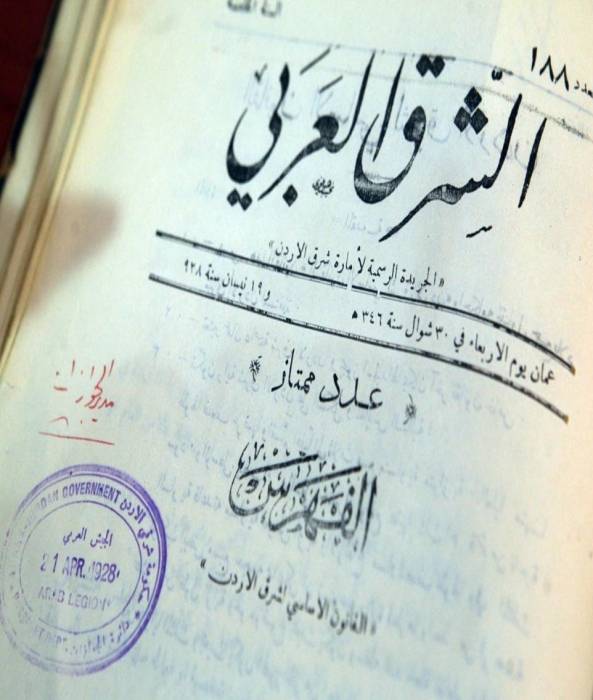 عدد ١٨٨
الشرق العربي
«الجريدة الرسمية لأمارة شرق الاردن»
عمان يوم الاربعاء في ٣٠ شوال سنة ٣٤٦ ه و ١٩ نيسان سنة ٩٢٨
عدد ممتاز
الفهرس
«القانون الاساسي لشرق الاردن»
GOVERNMENT
حكومة شرقي الاردن
الجيش العربي
21 APR. 1928
ARAB LEGION